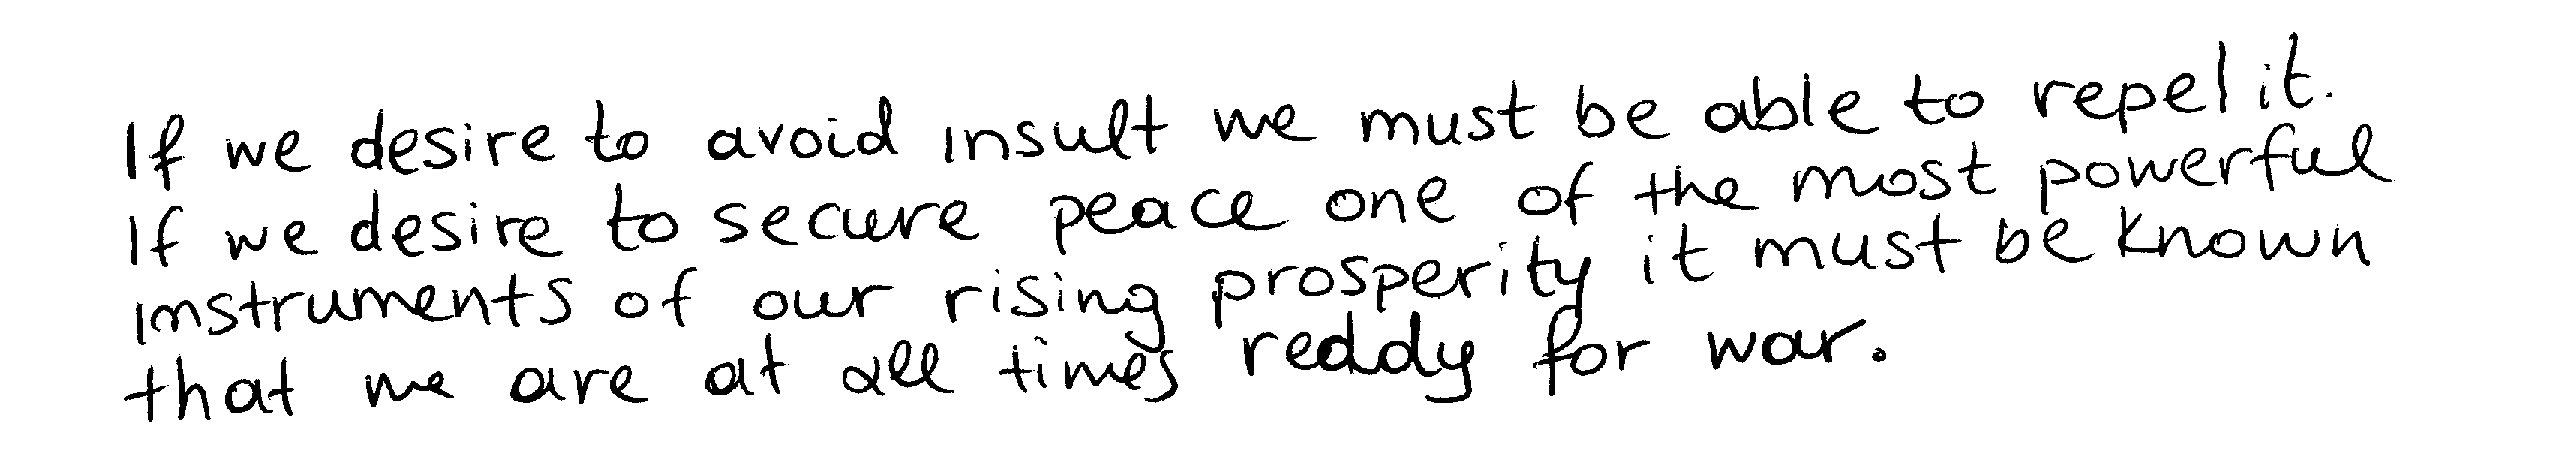 If we desire to avoid insult we must be able to repel it.
If we desire to secure peace one of the most powerful
instruments of our rising prosperity it must be known
that we are at all times reddy for war.